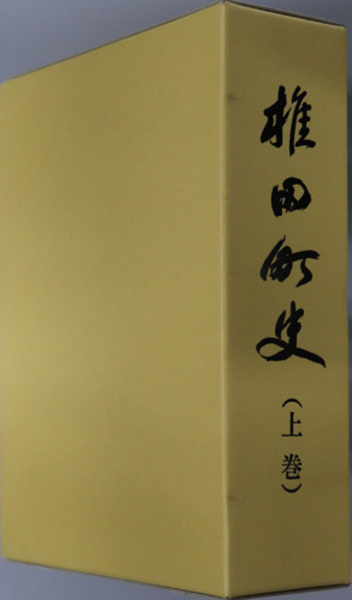 椎田町史
(上巻)